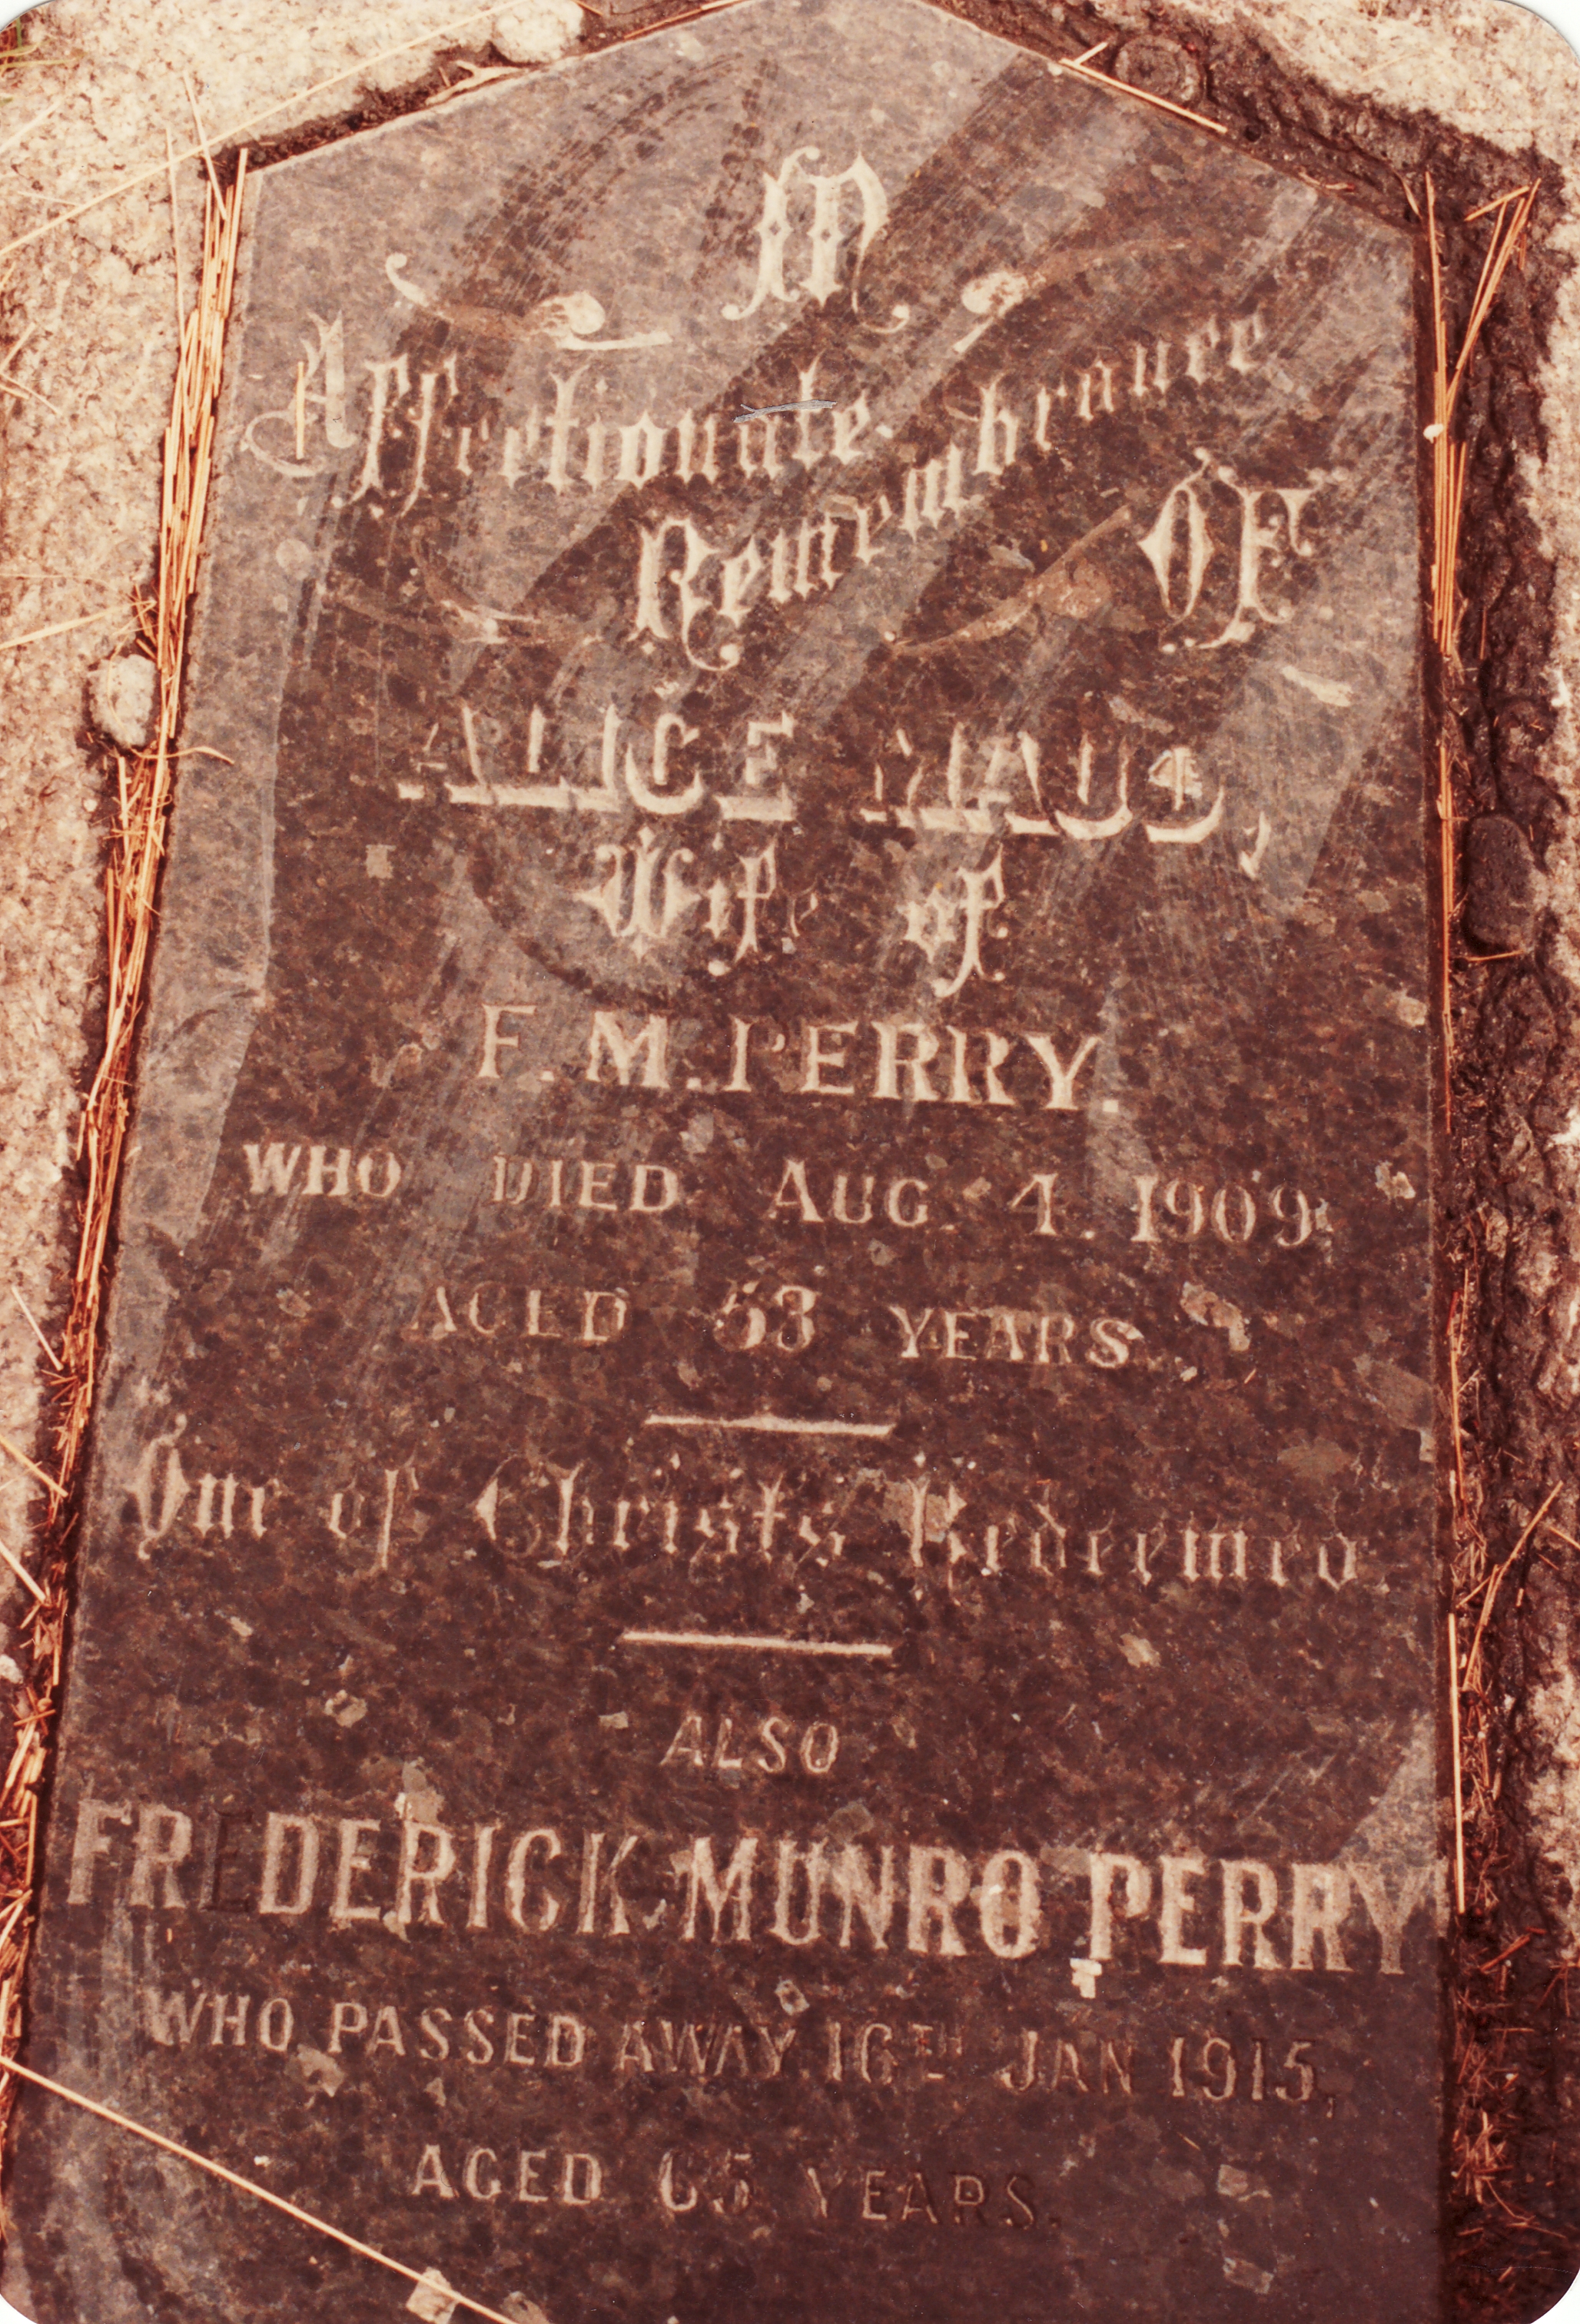 In
Affectionate
Remembrance
OF
ALICE MAUD,
Wife of
F. M. PERRY.
WHO DIED AUG. 4. 1909.
AGED 53 YEARS.
One of Christs Redeemed
ALSO
FREDERICK MUNRO PERRY
WHO PASSED AWAY 16TH JAN 1915,
AGED 65 YEARS.